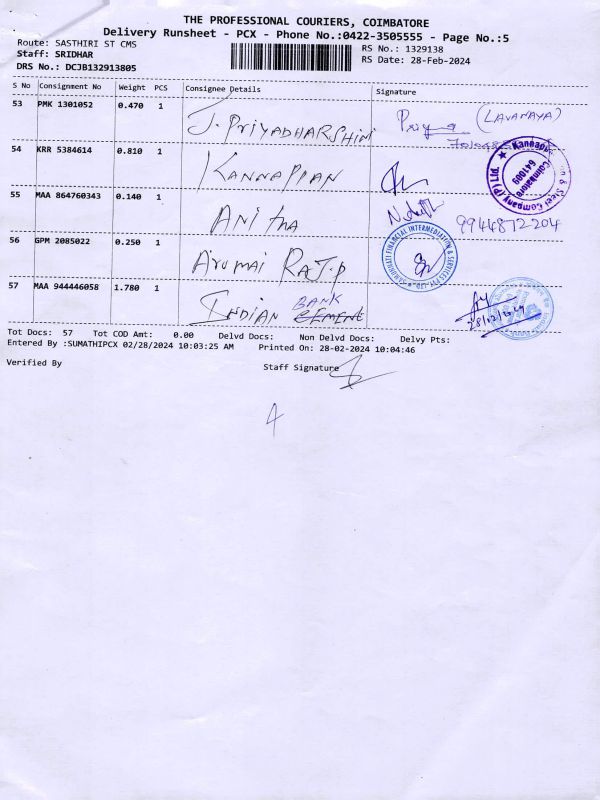 THE PROFESSIONAL COURIERS, COIMBATORE
Delivery Runsheet - PCX - Phone No.:0422-3505555 - Page No.:5
Route: SASTHIRI ST CMS
RS No.: 1329138
Staff: SRIDHAR
RS Date: 28-Feb-2024
DRS No.: DCJB132913805
S No Consignment No Weight PCS Consignee Details Signature
53 PMK 1301052 0.470 1 J. PRIYADHARSHINI Priya (LAVANAYA)
54 KRR 5384614 0.810 1 KANNAPIAN
Coimbatore 641009
55 MAA 864760343 0.140 1 Anitha 9944872204
56 GPM 2085022 0.250 1 Arumai RAJ.P
FINANCIAL INTERMEDIATION & SERVICES
57 MAA 944446058 1.780 1 INDIAN BANK CEMENT
Tot Docs: 57 Tot COD Amt: 0.00 Delvd Docs: Non Delvd Docs: Delvy Pts:
Entered By :SUMATHIPCX 02/28/2024 10:03:25 AM Printed On: 28-02-2024 10:04:46
Verified By Staff Signature
4